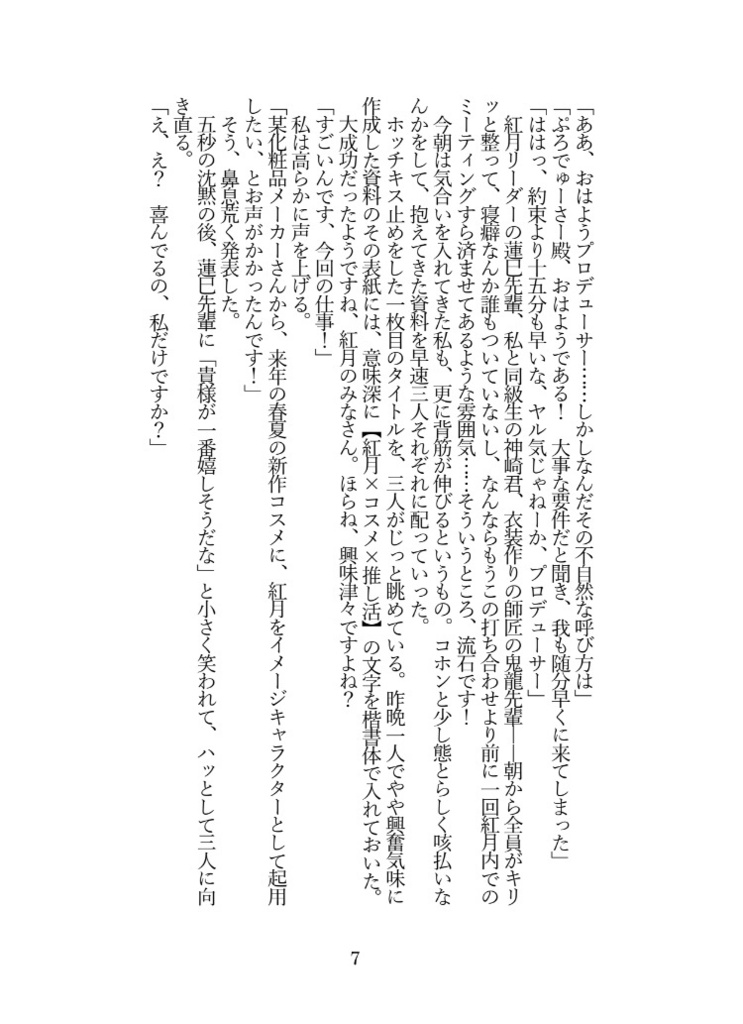 「ああ、おはようプロデューサー……しかしなんだその不自然な呼び方は」
「ぷろでゅーさー殿、おはようである！　大事な要件だと聞き、我も随分早くに来てしまった」
「ははっ、約束より十五分も早いな、ヤル気じゃねーか、プロデューサー」
　紅月リーダーの蓮巳先輩、私と同級生の神崎君、衣装作りの師匠の鬼龍先輩――朝から全員がキリ
ッと整って、寝癖なんか誰もついていないし、なんならもうこの打ち合わせより前に一回紅月内での
ミーティングすら済ませてあるような雰囲気……そういうところ、流石です！
　今朝は気合いを入れてきた私も、更に背筋が伸びるというもの。コホンと少し態とらしく咳払いな
んかをして、抱えてきた資料を早速三人それぞれに配っていった。
　ホッチキス止めをした一枚目のタイトルを、三人がじっと眺めている。昨晩一人でやや興奮気味に
作成した資料のその表紙には、意味深に【紅月×コスメ×推し活】の文字を楷書体で入れておいた。
　大成功だったようですね、紅月のみなさん。ほらね、興味津々ですよね？
「すごいんです、今回の仕事！」
　私は高らかに声を上げる。
「某化粧品メーカーさんから、来年の春夏の新作コスメに、紅月をイメージキャラクターとして起用
したい、とお声がかかったんです！」
　そう、鼻息荒く発表した。
　五秒の沈黙の後、蓮巳先輩に「貴様が一番嬉しそうだな」と小さく笑われて、ハッとして三人に向
き直る。
「え、え？　喜んでるの、私だけですか？」
7